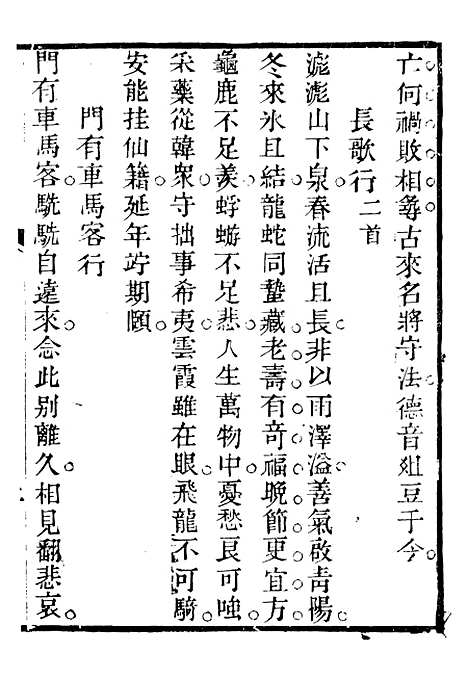 亡何禍敗相尋古來名將守法德音俎豆于今
長歌行二首
滮滮山下泉春流活且長非以雨澤溢善氣啟青陽
冬來氷且結龍蛇同蟄藏老壽有奇福晚節更宜方
龜鹿不足羨蜉蝣不足悲人生萬物中憂愁良可嗤
采藥從韓衆守拙事希夷雲霞雖在眼飛龍不可騎
安能挂仙籍延年竚期頤
門有車馬客行
門有車馬客駪駪自遠來念此别離久相見翻悲哀